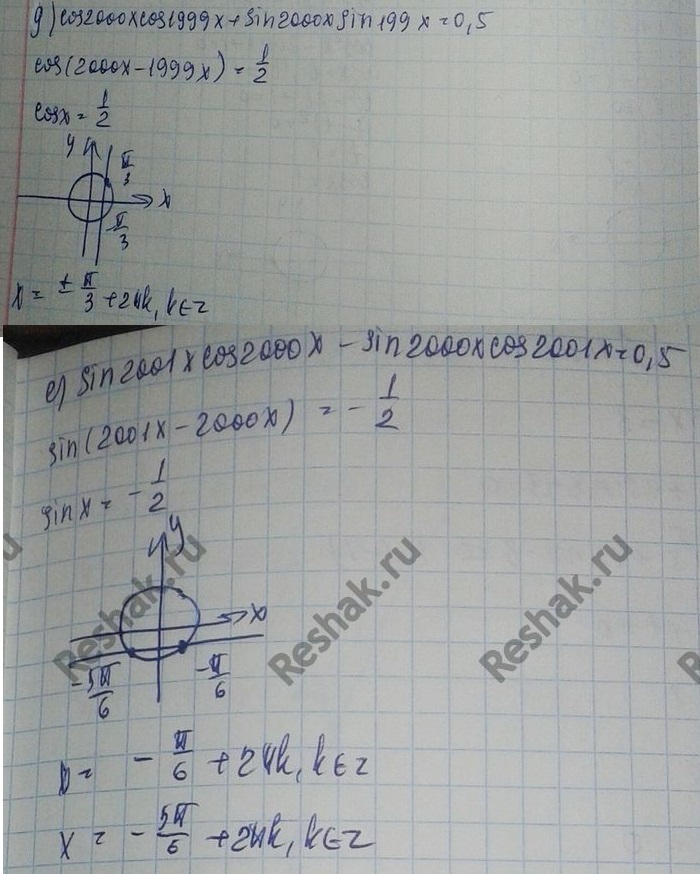 д) cos2000xcos1999x+sin2000xsin199x=0,5
cos(2000x-1999x)=1/2
cosx=1/2
y
π/3
x
-π/3
x=±π/3+2πk, k∈z
е) sin2001xcos2000x-sin2000xcos2001x=0,5
sin(2001x-2000x)=-1/2
sinx=-1/2
y
x
-5π/6
-π/6
x=-π/6+2πk, k∈z
x=-5π/6+2πk, k∈z
Reshak.ru
Reshak.ru
Reshak.ru